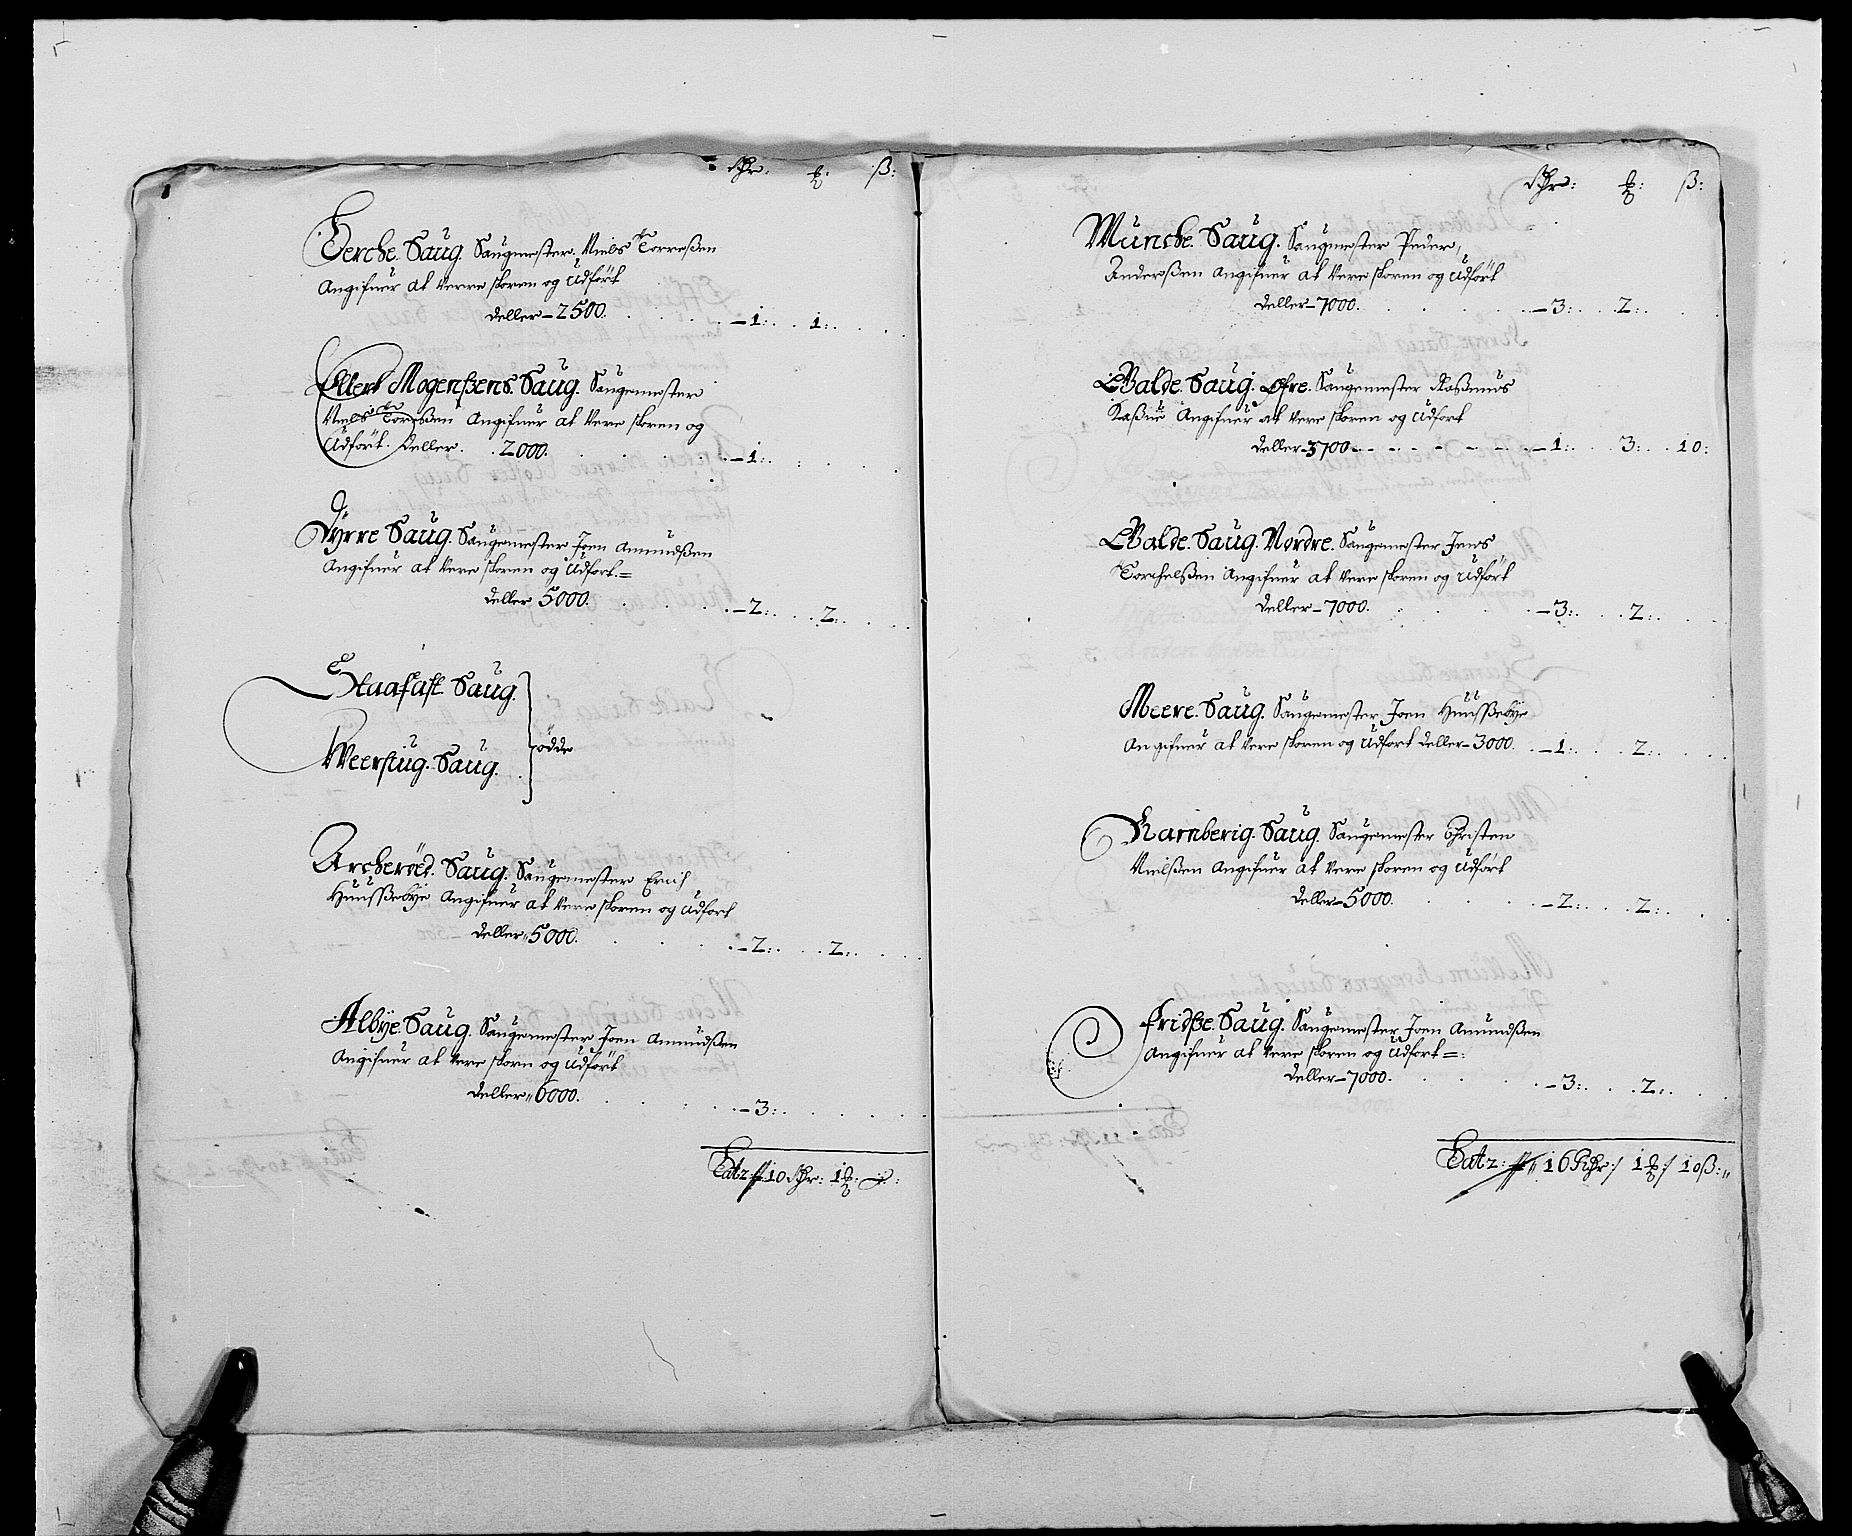 ß:
Lerche. Saug. Saugemester. Niels Torreßen
Angifuer at verre skoren og Udført
deller – 2500. – 1: 1:
Ellert Mogenßens. Saug. Saugemester
Niels Torreßen Angifuer at vere skoren og
Udført. deller. 2000. – 1:
Dyrre Saug. Saugemester Joen Amundßen
Angifuer at vere skoren og Udfort. =
deller 5000. – 2: 2:
Staafast. Saug.
Weerstug. Saug. } ødde
Archerøed. Saug. Saugemester Erich
Huußebye Angifuer at vere skoren og Udfort
deller 5000. – 2: 2:
Albye. Saug. Saugemester Joen Amundßen
Angifuer at vere skoren og Udført
deller 6000. – 3:
Latz 10 1
ß:
Munche. Saug. Saugemester Peder
Anderßen Angifuer at vere skoren og Udført
deller – 7000. – 3: 2:
Walde. Saug. Øfre. Saugemester Raßmus
Angifuer at vere skoren og Udfort
deller – 3700 – 1: 3: 10:
Walde. Saug. Nordre. Saugemester Jens
Torchelßen Angifuer at vere skoren og Udført
deller – 7000. – 3: 2:
Meere. Saug. Saugemester Joen Huußebye
Angifuer at vere skoren og Udfort deller – 3000. – 1: 2:
Karnberig. Saug. Saugemester Christen
Nielßen Angifuer at vere skoren og Udført
deller – 5000. – 2: 2:
Fridße. Saug. Saugemester Joen Amundßen
Angifuer at vere skoren og Udfort =:
deller – 7000. – 3: 2:
Latz: 16 Rdr: 1 10 ß: